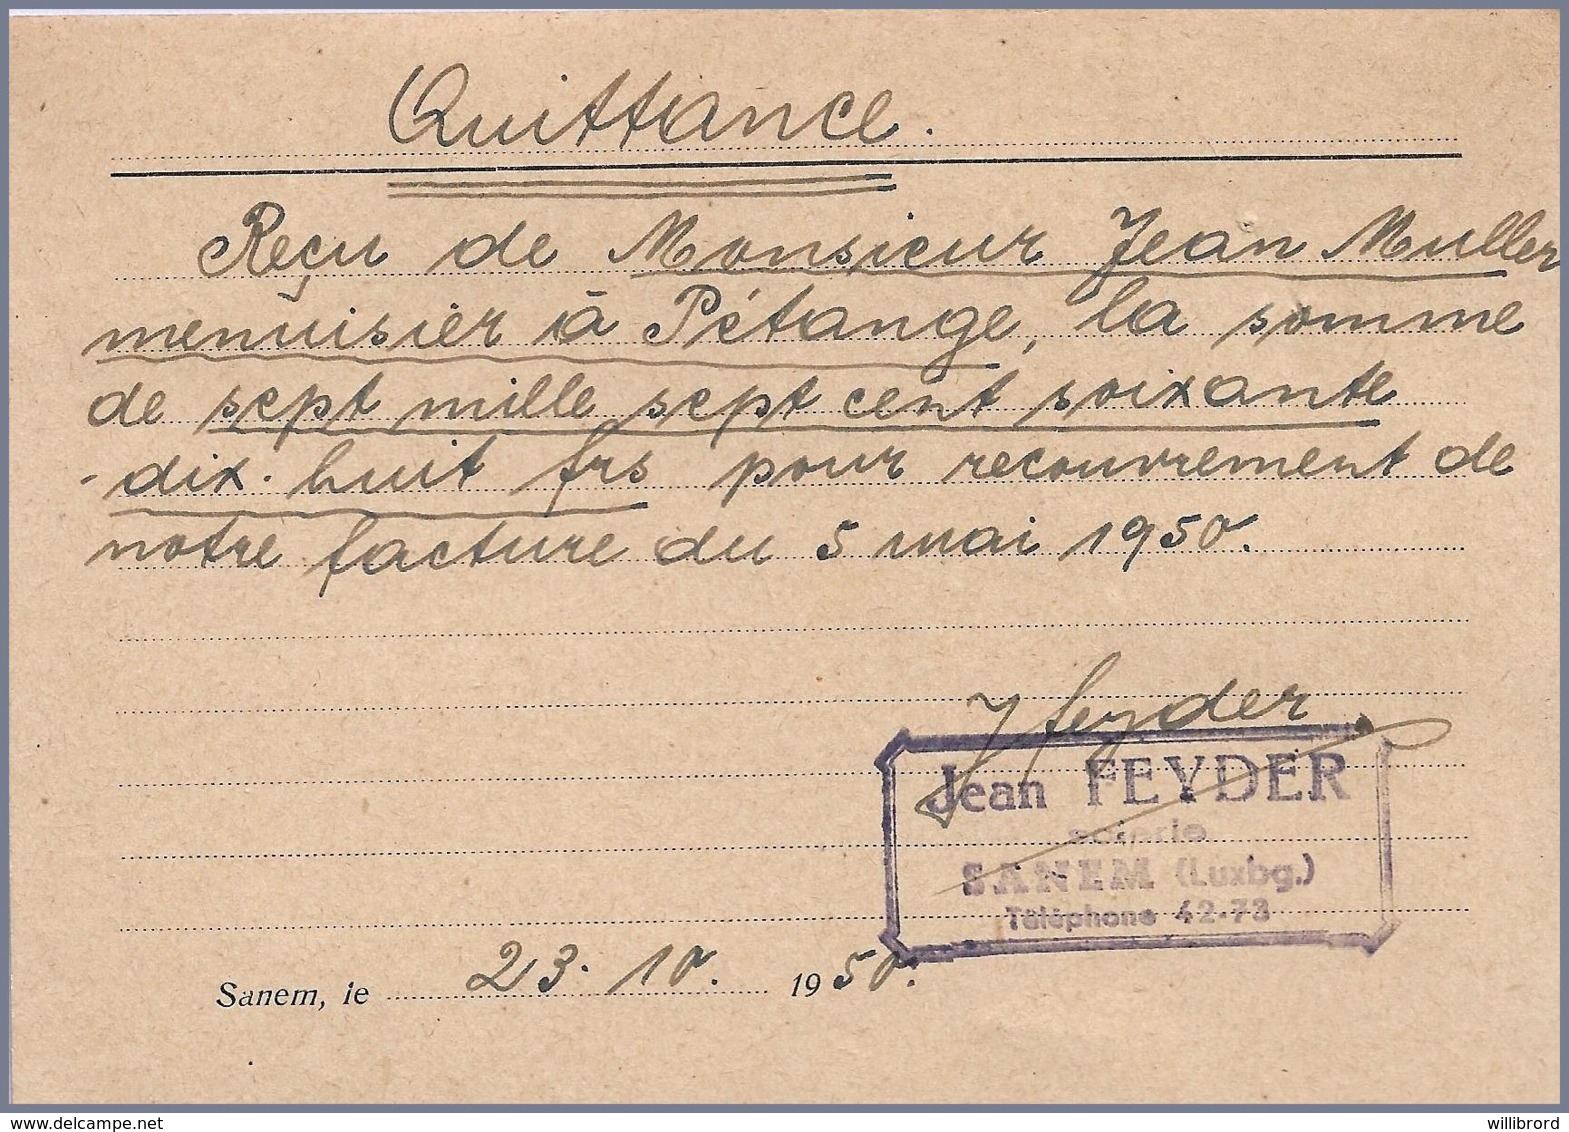 Quittance.
Reçu de Monsieur Jean Muller
menuisier à Pétange, la somme
de sept mille sept cent soixante
-dix-huit frs pour recouvrement de
notre facture du 5 mai 1950.
J Feyder
Jean FEYDER
scierie
SANEM (Luxbg.)
Téléphone 42-73
Sanem, le 23. 10. 1950.
delcampe.net
willibrord